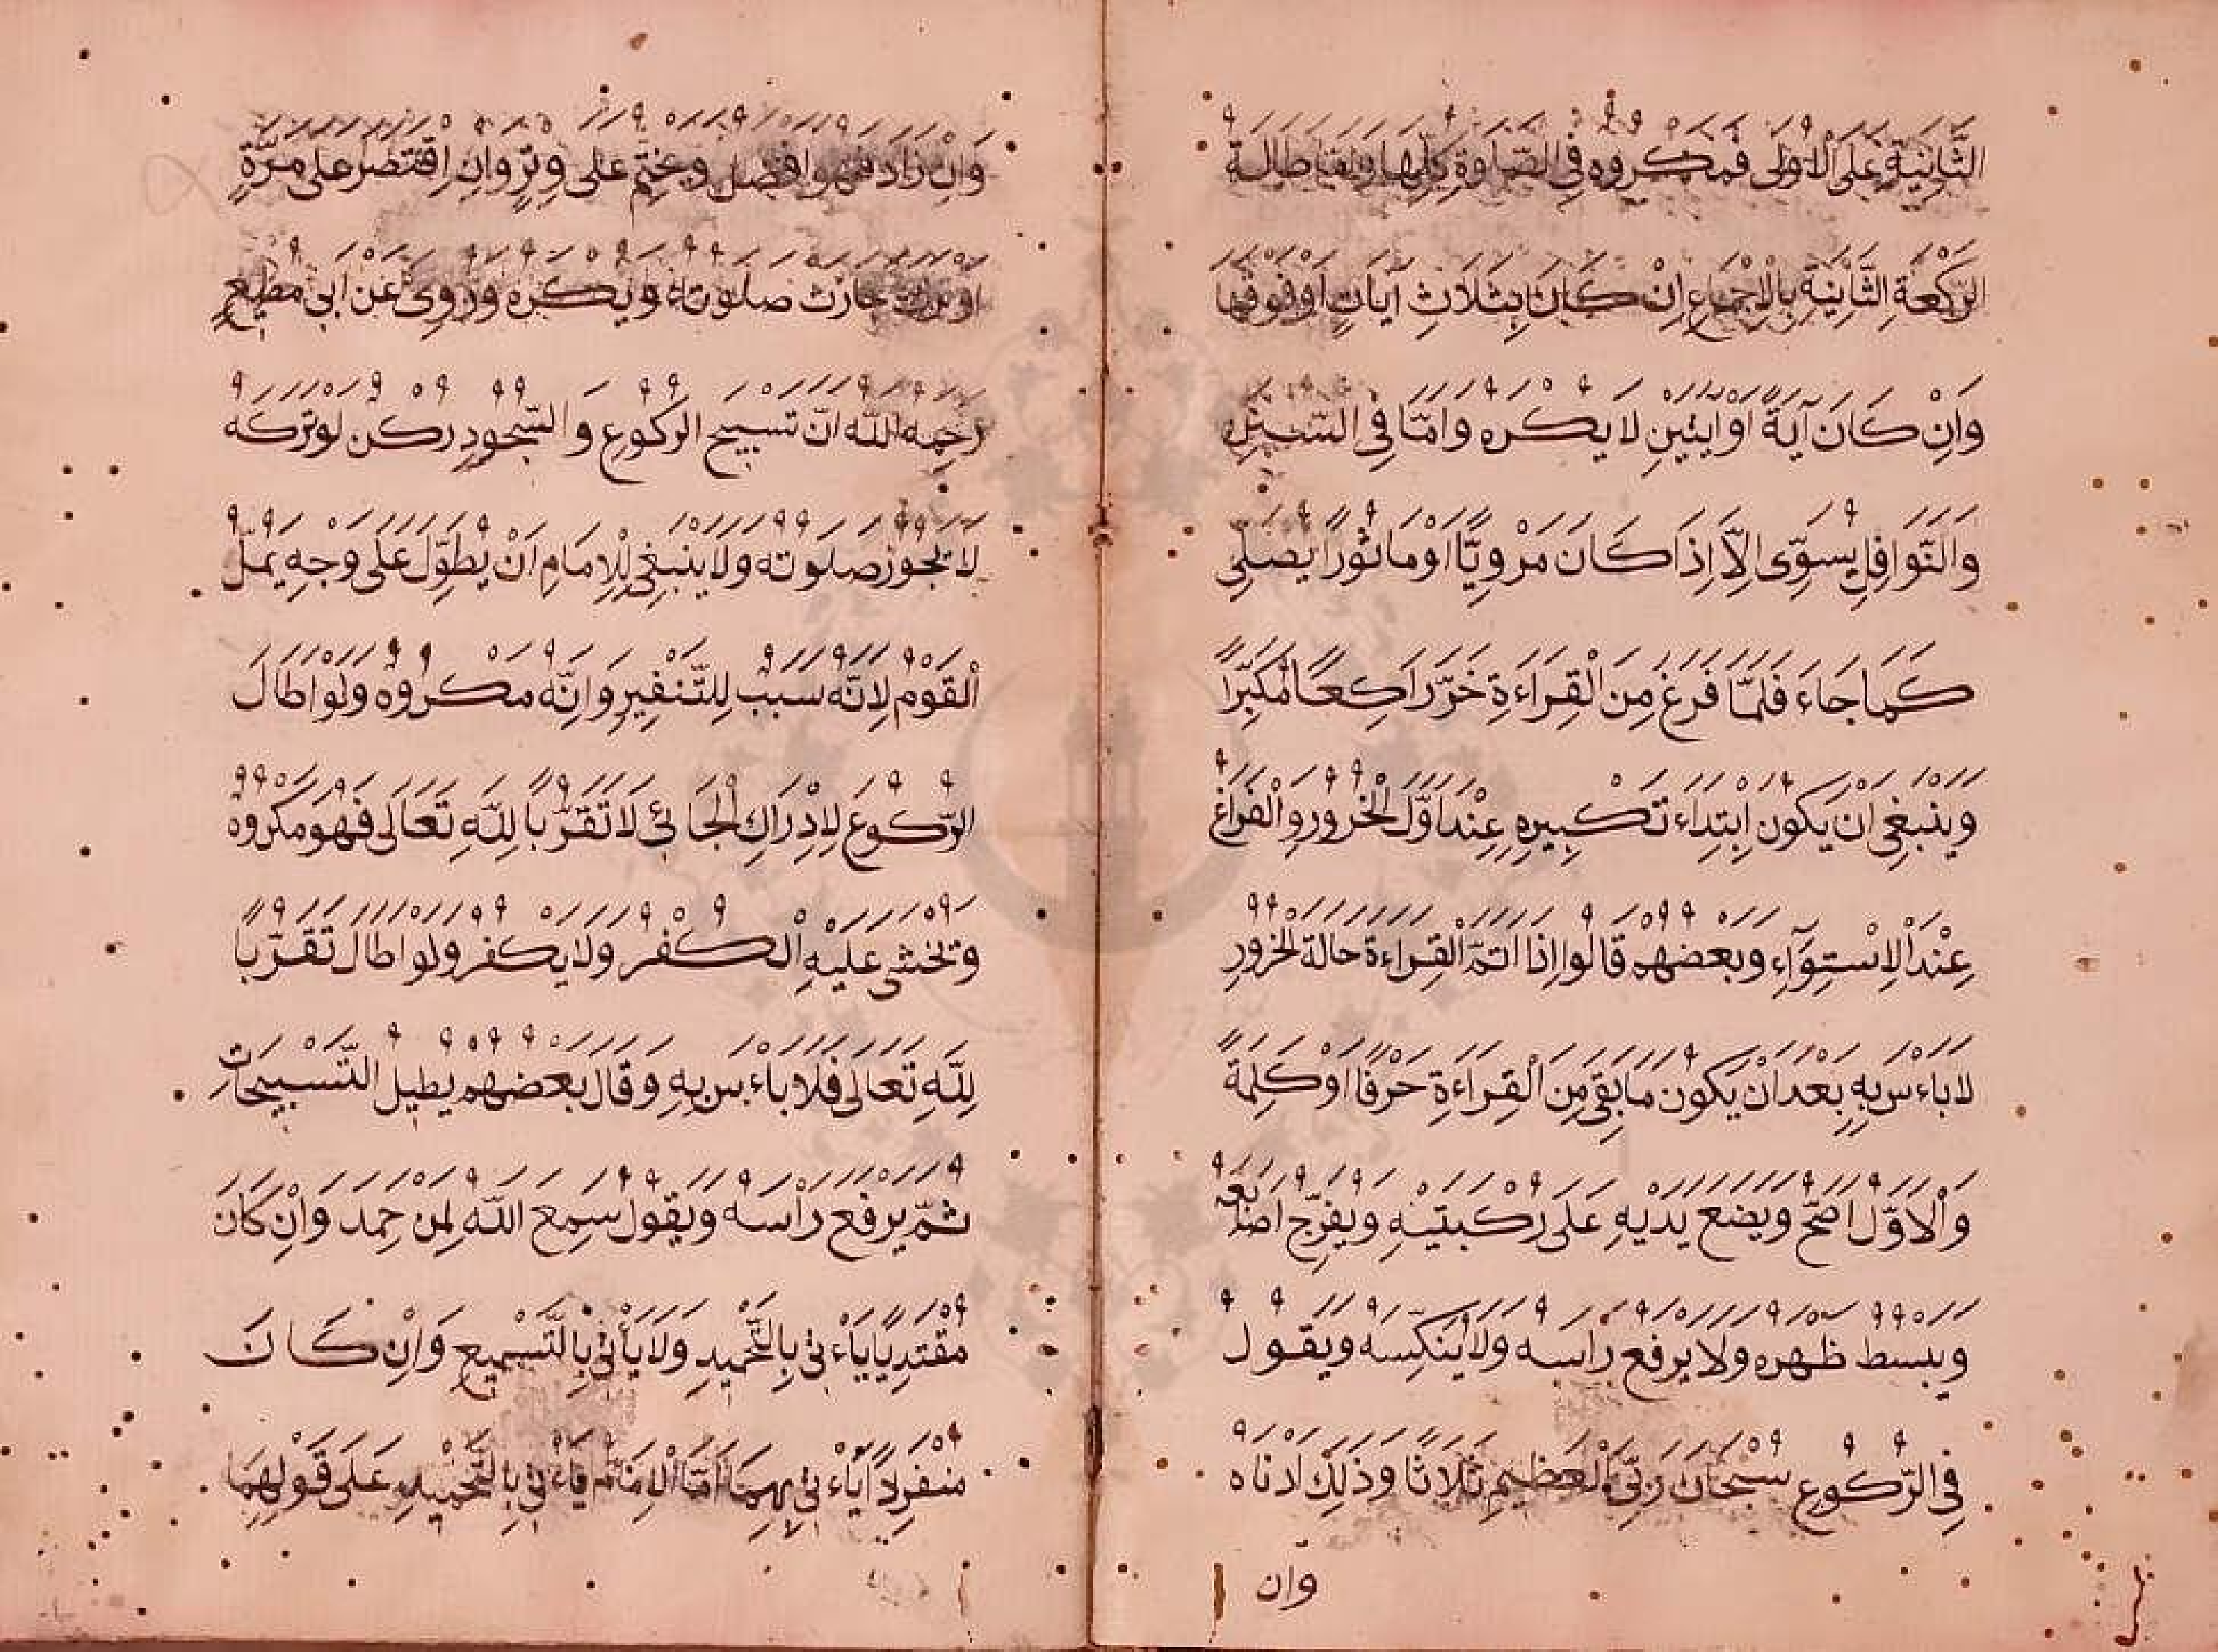 الثَّانِيَةِ عَلَى الْاُولَى فَمَكْرُوهٌ فِي الصَّلوةِ كُلِّهَا وَ اطالة
الرَّكْعَةِ الثَّانِيَةِ بِالْاِجْمَاعِ اِنْ كَانَ بِثَلَاثِ آيَاتٍ اَوْ فَوْقَهَا
وَاِنْ كَانَ آيَةً اَوْ ايتَيْنِ لَا يُكْرَهُ وَاَمَّا فِي السُّنَنِ
وَالنَّوَافِلِ يُسَوِّى اِلَّا اِذَا كَانَ مَرْوِيًّا اَوْ مَاثُورًا يُصَلِّى
كَمَا جَاءَ فَلَمَّا فَرَغَ مِنَ الْقِرَاءَةِ خَرَّ رَاكِعًا مُكَبِّرًا
وَيَنْبَغِى اَنْ يَكُونَ اِبْتِدَاءُ تَكْبِيرِهِ عِنْدَ اَوَّلِ الْخُرُورِ وَالْفَرَاغُ
عِنْدَ الْاِسْتِوَآءِ وَبَعْضُهُمْ قَالُوا اِذَا اَتَمَّ الْقِرَاءَةَ حَالَةَ الْخُرُورِ
لَا بَاءْسَ بِهِ بَعْدَ اَنْ يَكُونَ مَا بَقِىَ مِنَ الْقِرَاءَةِ حَرْفًا اَوْ كَلِمَةً
وَالْاَوَّلُ اَصَحُّ وَيَضَعُ يَدَيْهِ عَلَى رُكْبَتَيْهِ وَيُفَرِّجُ اَصَابِعَهُ
وَيَبْسُطُ ظَهْرَهُ وَلَا يَرْفَعُ رَاْسَهُ وَلَا يُنَكِّسُهُ وَيَقُولُ
فِى الرُّكُوعِ سُبْحَانَ رَبِّىَ الْعَظِيمِ ثَلَاثًا وَذَلِكَ اَدْنَاهُ
وان
وَاِنْ زَادَ فَهُوَ اَفْضَلُ وَيَخْتِمُ عَلَى وِتْرٍ وَاِنِ اقْتَصَرَ عَلَى مَرَّةٍ
اَوْ جَازَتْ صَلوتُهُ وَيُكْرَهُ وَرُوِىَ عَنْ اَبِى مُطِيعٍ
رَحِمَهُ اللّهُ اَنَّ تَسْبِيحَ الرُّكُوعِ وَالسُّجُودِ رُكْنٌ لَوْ تَرَكَهُ
لَا تَجُوزُ صَلوتُهُ وَلَا يَنْبَغِى لِلْاِمَامِ اَنْ يُطَوِّلَ عَلَى وَجْهٍ يُمِلُّ
الْقَوْمَ لِاَنَّهُ سَبَبٌ لِلتَّنْفِيرِ وَاِنَّهُ مَكْرُوهٌ وَلَوْ اَطَالَ
الرُّكُوعَ لِاِدْرَاكِ الْجَائِى لَا تَقَرُّبًا لِلّهِ تَعَالَى فَهُوَ مَكْرُوهٌ
وَيُخْشَى عَلَيْهِ الْكُفْرُ وَلَا يُكْفَرُ وَلَوْ اَطَالَ تَقَرُّبًا
لِلّهِ تَعَالَى فَلَا بَاءْسَ بِهِ وَقَالَ بَعْضُهُمْ يُطِيلُ التَّسْبِيحَاتِ
ثُمَّ يَرْفَعُ رَاْسَهُ وَيَقُولُ سَمِعَ اللّهُ لِمَنْ حَمِدَ وَاِنْ كَانَ
مُقْتَدِيًا يَاْءتِى بِالتَّحْمِيدِ وَلَا يَأْتِى بِالتَّسْمِيعِ وَاِنْ كَانَ
مُنْفَرِدًا يَاْءتِى بِهِمَا اَمَّا الْاِمَامُ يَاْءتِى بِالتَّحْمِيدِ عَلَى قَوْلِهِمَا